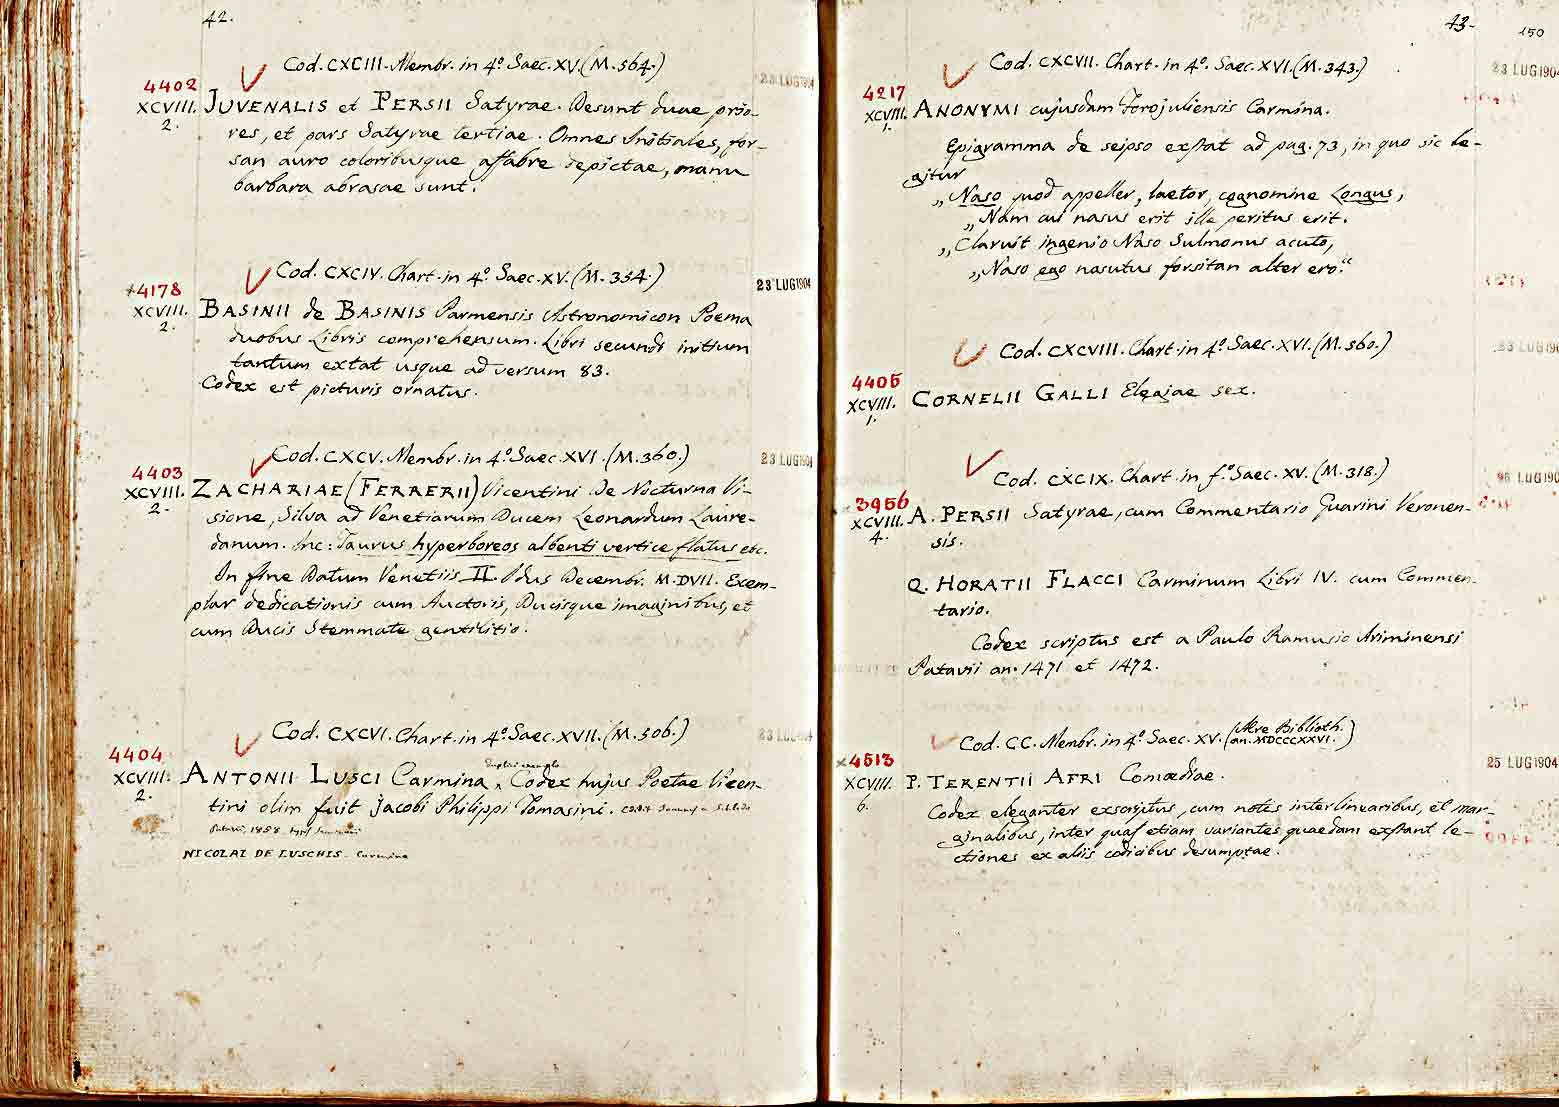 42.
Cod. CXCIII. Membr. in 4º. Saec. XV. (M. 564.)
23 LUG 1904
4402
XCVIII.
2.
JUVENALIS et PERSII Satyrae. Desunt duae prio-
res, et pars Satyrae tertiae. Omnes Initiales, for-
san auro coloribusque affabre depictae, manu
barbara abrasae sunt.
Cod. CXCIV. Chart. in 4º. Saec. XV. (M. 334.)
23 LUG 1904
*4178
XCVIII.
2.
BASINII de BASINIS Parmensis Astronomicon Poema
duobus Libris comprehensum. Libri secundi initium
tantum extat usque ad versum 83.
Codex est picturis ornatus.
Cod. CXCV. Membr. in 4º Saec. XVI. (M. 360.)
23 LUG 1904
4403
XCVIII.
2.
ZACHARIAE (FERRERII) Vicentini de Nocturna Vi-
sione, Silva ad Venetiarum Ducem Leonardum Laure-
danum. Inc: Taurus hyperboreos albenti vertice flatus etc.
In fine Datum Venetiis II. Idus Decembr. M.DVII. Exem-
plar dedicationis cum Auctoris, Ducisque imaginibus, et
cum Ducis Stemmate gentilitio.
Cod. CXCVI. Chart. in 4º Saec. XVII. (M. 506.)
23 LUG 1904
4404
XCVIII.
2.
ANTONII LUSCI Carmina. Codex hujus Poetae Vicen-
tini olim fuit Jacobi Philippi Tomasini.
Patavii, 1858.
NICOLAI DE LUSCHIS Carmina
43.
150
Cod. CXCVII. Chart. in 4º. Saec. XVI. (M. 343.)
23 LUG 1904
4217
XCVIII.
1.
ANONYMI cujusdam Forojuliensis Carmina.
Epigramma de seipso exstat ad pag. 73, in quo sic le-
gitur
„Naso quod appeller, laetor, cognomine Longus;
„Nam cui nasus erit ille peritus erit.
„Claruit ingenio Naso Sulmonus acuto,
„Naso ego nasutus forsitan alter ero.“
Cod. CXCVIII. Chart. in 4º Saec. XVI. (M. 560.)
23 LUG 190
4405
XCVIII.
1.
CORNELII GALLI Elegiae sex.
Cod. CXCIX. Chart. in fº. Saec. XV. (M. 318.)
LUG 190
*3956
XCVIII.
4.
A. PERSII Satyrae, cum Commentario Guarini Veronen-
sis.
Q. HORATII FLACCI Carminum Libri IV. cum Commen-
tario.
Codex scriptus est a Paulo Ramusio Ariminensi
Patavii an. 1471 et 1472.
Cod. CC. Membr. in 4º Saec. XV. (Aere Biblioth.
an. MDCCCXXVI.)
25 LUG 1904
*4513
XCVIII.
6.
P. TERENTII AFRI Comoediae.
Codex eleganter exscriptus, cum notis interlinearibus, et mar-
ginalibus, inter quas etiam variantes quaedam exstant le-
ctiones ex aliis codicibus desumptae.